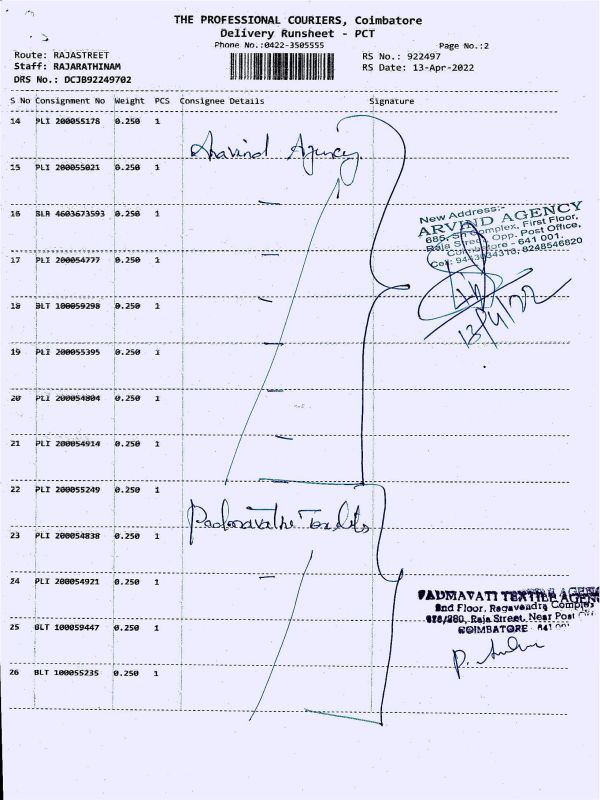 THE PROFESSIONAL COURIERS, Coimbatore
Delivery Runsheet - PCT
Phone No.:0422-3505555
Page No.:2
Route: RAJASTREET
RS No.: 922497
Staff: RAJARATHINAM
RS Date: 13-Apr-2022
DRS No.: DCJB92249702
S No Consignment No Weight PCS Consignee Details Signature
14 PLI 200055178 0.250 1
Aravind Agency
15 PLI 200055021 0.250 1
16 BLR 4603673593 0.250 1
New Address:-
ARVIND AGENCY
685, Sri Complex, First Floor,
Raja Street, Opp. Post Office,
Coimbatore - 641 001.
Cell: 8248546820
17 PLI 200054777 0.250 1
18 BLT 100059298 0.250 1
13/4/22
19 PLI 200055395 0.250 1
20 PLI 200054804 0.250 1
21 PLI 200054914 0.250 1
22 PLI 200055249 0.250 1
Padmavathi
23 PLI 200054838 0.250 1
24 PLI 200054921 0.250 1
PADMAVATI TEXTILE AGENC
2nd Floor, Ragavendra Complex
Raja Street, Near Post
COIMBATORE - 641 001
25 BLT 100059447 0.250 1
26 BLT 100055235 0.250 1